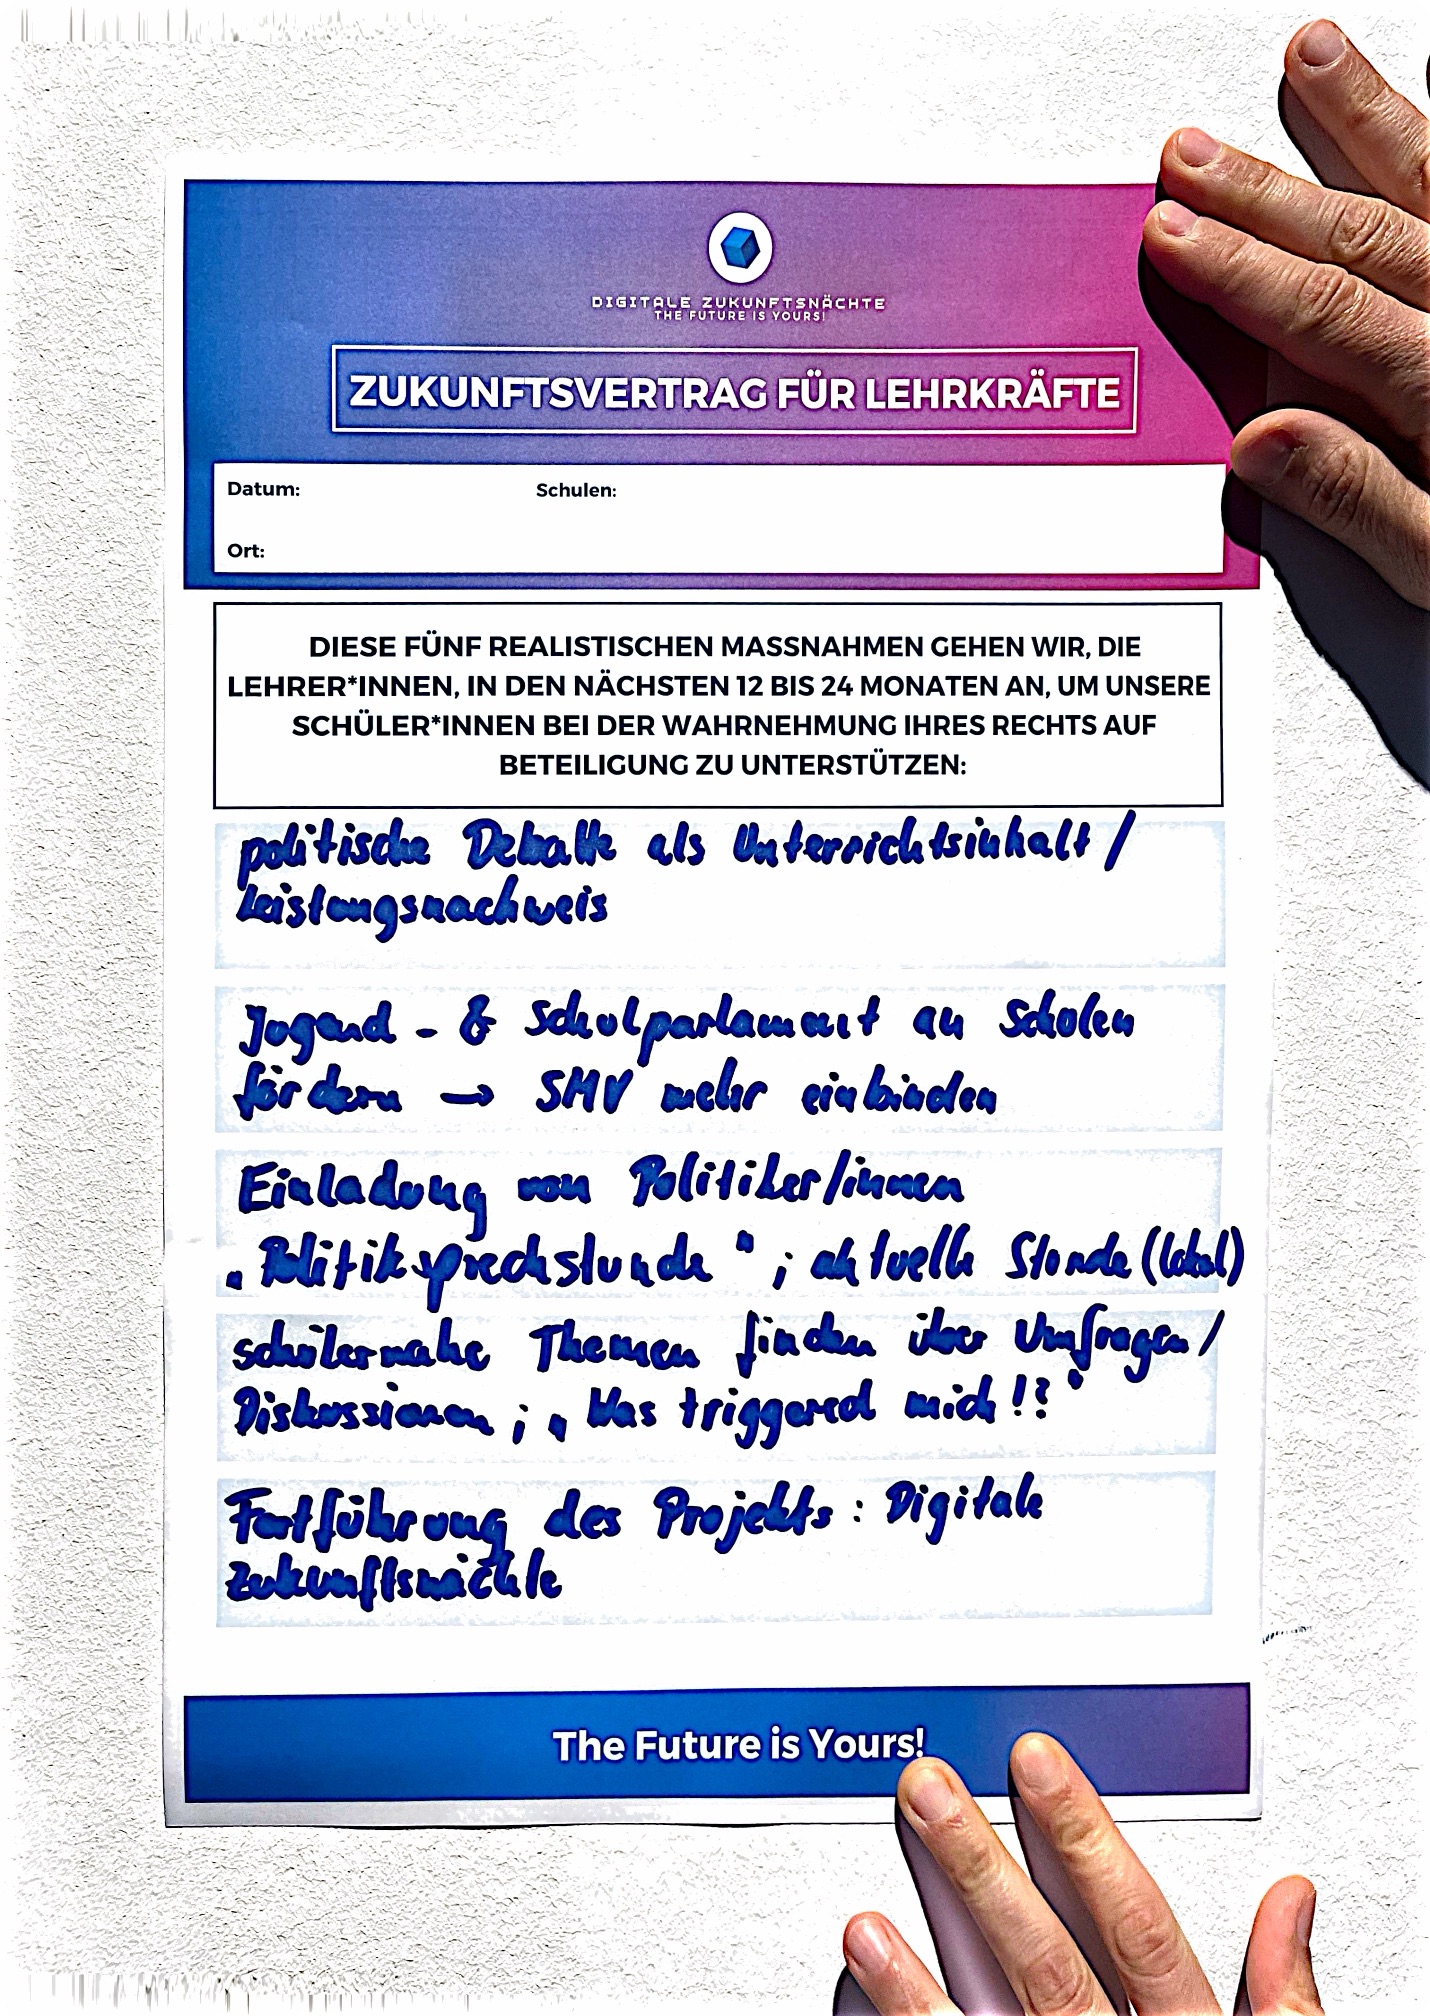 DIGITALE ZUKUNFTSNÄCHTE
THE FUTURE IS YOURS!
ZUKUNFTSVERTRAG FÜR LEHRKRÄFTE
Datum: Schulen:
Ort:
DIESE FÜNF REALISTISCHEN MASSNAHMEN GEHEN WIR, DIE
LEHRER*INNEN, IN DEN NÄCHSTEN 12 BIS 24 MONATEN AN, UM UNSERE
SCHÜLER*INNEN BEI DER WAHRNEHMUNG IHRES RECHTS AUF
BETEILIGUNG ZU UNTERSTÜTZEN:
politische Debatte als Unterrichtsinhalt /
Leistungsnachweis
Jugend- & Schulparlament an Schulen
fördern → SMV mehr einbinden
Einladung von Politiker/innen
„Politiksprechstunde"; aktuelle Stunde (lokal)
schülernahe Themen finden über Umfragen/
Diskussionen; „Was triggered mich!?"
Fortführung des Projekts: Digitale
Zukunftsnächte
The Future is Yours!